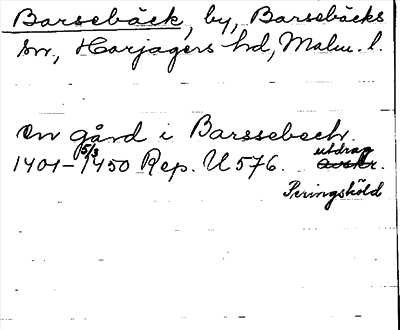 Barsebäck, by, Barsebäcks
sn, Harjagers hd, Malm. l.
en gård i Barssebech.
1401-5/3 1450 Rep. U 576. utdrag
Avskr.
Peringsköld